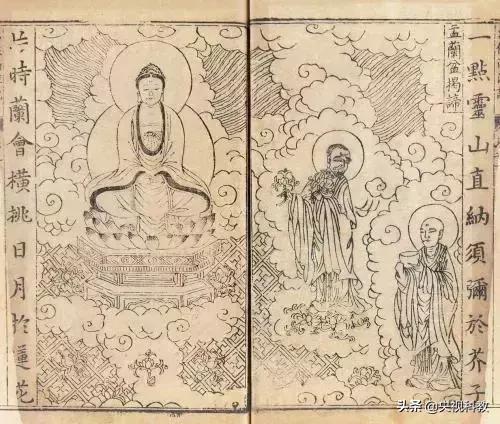 一點靈山直納須彌於芥子
盂蘭盆揭諦
時蘭會橫挑日月於蓮花
头条 @央视科教